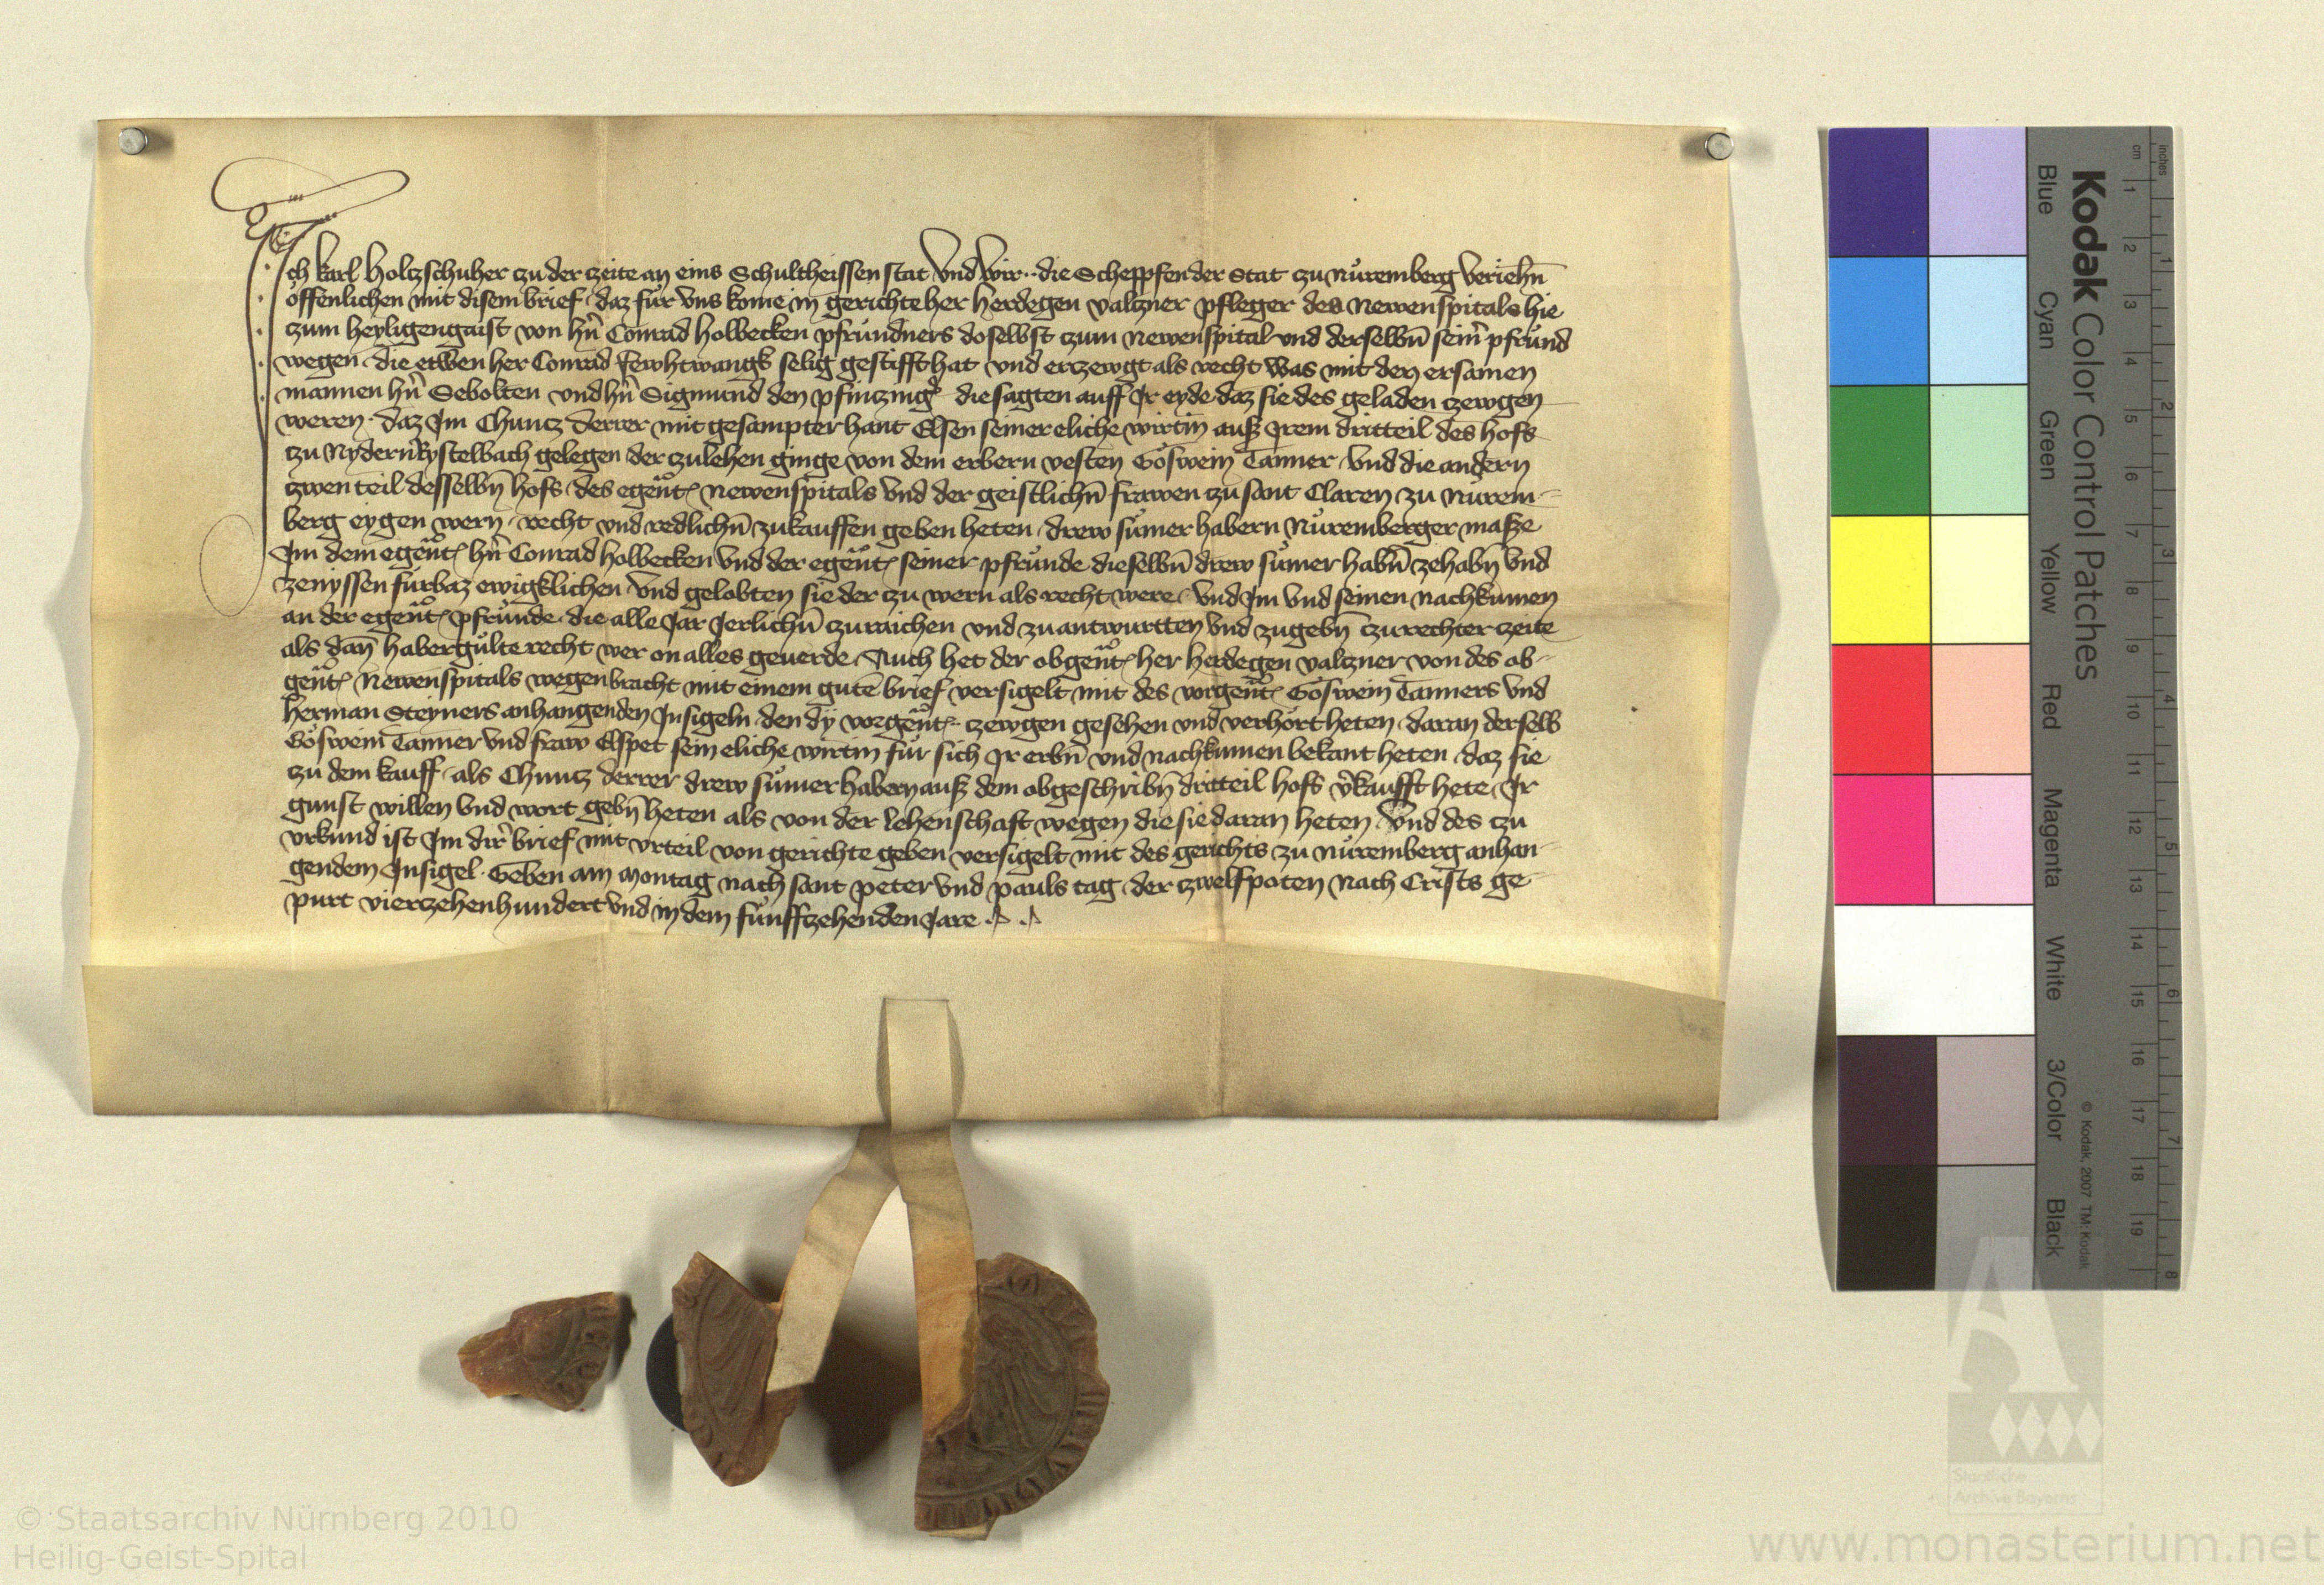 Ich karl Holtzschuher zu der zeite an eins Schultheissen stat Vnd wir ·· die Scheppfen der Stat zu nůremberg veriehn̄
offenlichen mit disem brief · daz fůr vns kome in gerichte her herdegen valtzner pfleger des Newenspitals hie
zum heyligengaist von hn̄ Conrad holbecken pfrůndners doselbst zum Newenspital vnd derselbn̄ sein̄ pfrůnd
wegen · die etwen her Conrad selig gestifft hat vnd erzewgt als recht was mit den ersamen
mannen hn̄ Sebolten vnd hn̄ Sigmund den pfintzing̉ die sagten auff Ir eyde daz sie des geladen zewgen
weren · daz Im Chuntz derrer mit gesampter hant Elsen seiner eliche wirtin auß Irem dritteil des hofs
zu Nydern gelegen der zulehen ginge von dem erbern vesten Goswein Tanner · Vnd die andern
zwen teil desselbn̄ hofs · des egen̄t Newenspitals vnd der geistlichn̄ frawen zu sant Claren zu Nůrem-
berg eygen wern · recht vnd redlichn̄ zukauffen geben heten · drew sůmer habern Nůremberger maße
Im dem egen̄t hn̄ Conrad holbecken vnd der egen̄t seiner pfrůnde dieselbn̄ drew sůmer habn̄ zehabn̄ vnd
zenyssen fůrbaz ewigklichen Vnd gelobten sie der zu wern als recht were · Vnd Im vnd seinen nachkumen
an der egen̄t pfrůnde · die alle Jar Jerlichn̄ zuraichen vnd zuantwurtten vnd zugebn̄ zu rechter zeite
als dan̄ habergůlte recht wer on alles geuerde · Auch het der obgen̄t her herdegen valtzner von des ob-
gen̄t Newenspitals wegen bracht mit einem gutē brief versigelt mit des vorgen̄t Goswein Tanners vnd
herman Steyners anhangenden Insigeln · den dy vorgen̄t zewgen gesehen vnd verhört heten · daran derselb
Goswein Tanner vnd fraw Elspet sein eliche wirtin fůr sich Ir erbn̄ vnd nachkumen bekant heten · daz sie
zu dem kauff · als Chuntz derrer drew sůmer habern auß dem obgeschribn̄ dritteil hofs v̉kaufft hete · Ir
gunst willen vnd wort gebn̄ heten als von der lehenschaft wegen die sie daran heten · Vnd des zu
vrkund ist Im dir̉ brief mit vrteil von gerichte geben versigelt mit des gerichts zu nůremberg anhan-
gendem Insigel · Geben am Montag nach sant peter vnd pauls tag · der zwelfpoten Nach Crists ge-
purt vierzehenhundert vnd in dem fůnffzehenden Jare ·
Kodak Color Control Patches
Blue Cyan Green Yellow Red Magenta White 3/Color Black
cm 1 2 3 4 5 6 7 8 9 10 11 12 13 14 15 16 17 18 19
inches 1 2 3 4 5 6 7 8
© Kodak, 2007 TM: Kodak
A
Staatliche
Archive Bayerns
© Staatsarchiv Nürnberg 2010
Heilig-Geist-Spital
www.monasterium.net